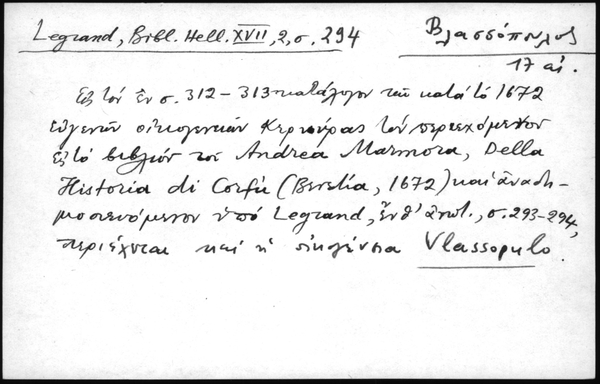 Legrand, Bibl. Hell. XVII, 2, σ. 294
Βλασσόπουλος
17 αἰ.
Εἰς τὸν ἐν σ. 312-313 κατάλογον τῶν κατὰ τὸ 1672
εὐγενῶν οἰκογενειῶν Κερκύρας τὸν περιεχόμενον
εἰς τὸ βιβλίον τοῦ Andrea Marmora, Della
Historia di Corfù (Βενετία, 1672) καὶ ἀναδη-
μοσιευόμενον ὑπὸ Legrand, ἔνθ' ἀνωτ., σ. 293-294,
περιέχεται καὶ ἡ οἰκογένεια Vlassopulo.